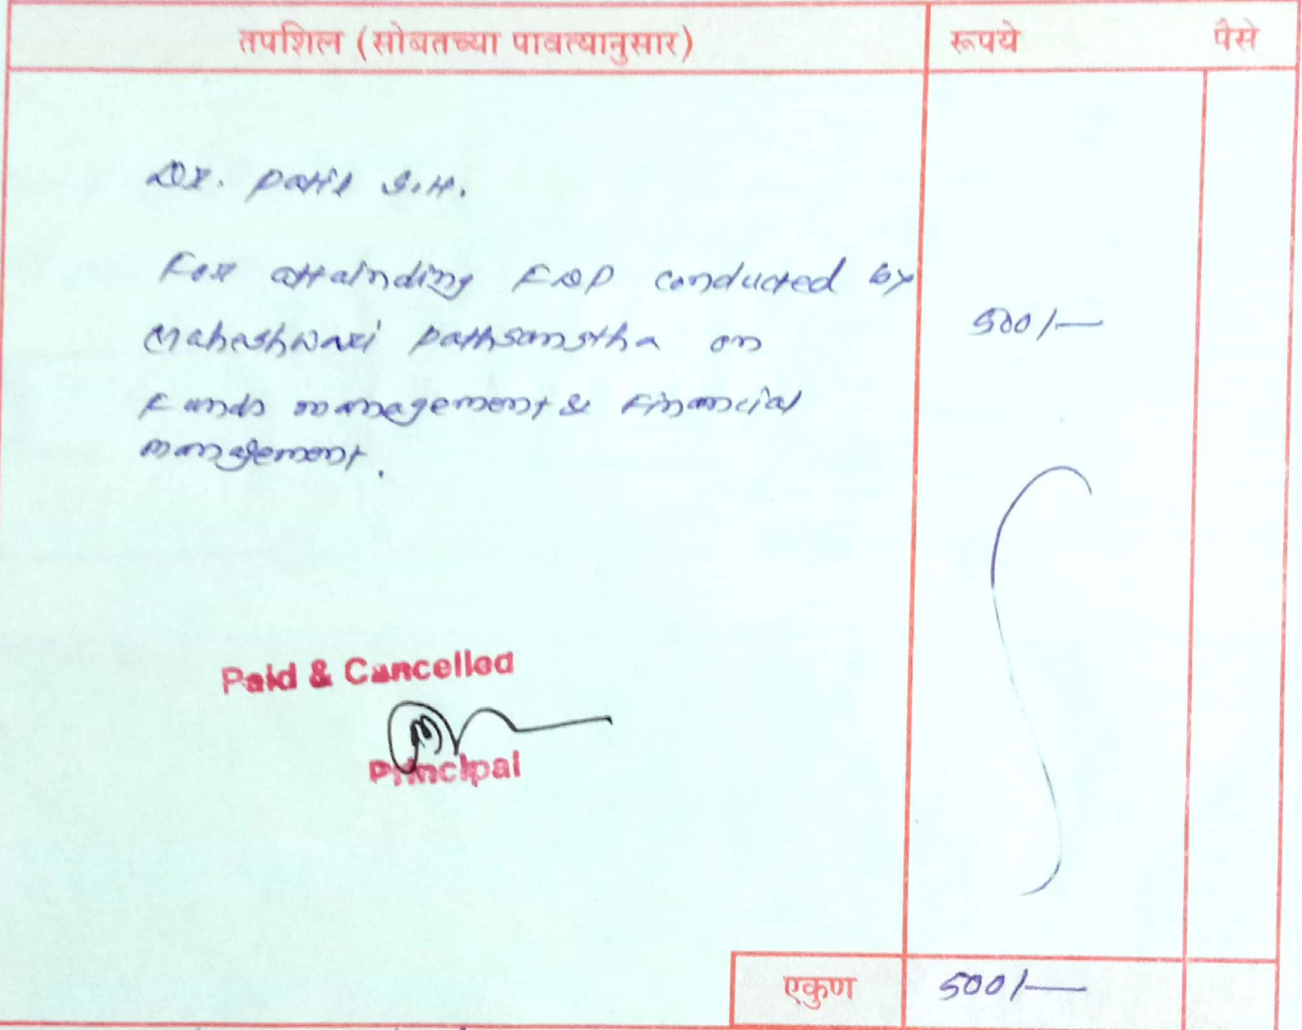 तपशिल (सोबतच्या पावत्यानुसार) रूपये पैसे
Dr. Patil S.H.
For attainding FDP conducted by
Maheshwari pathsanstha on 500/-
Funds management & Financial
management.
Paid & Cancelled
Principal
एकुण 500/-